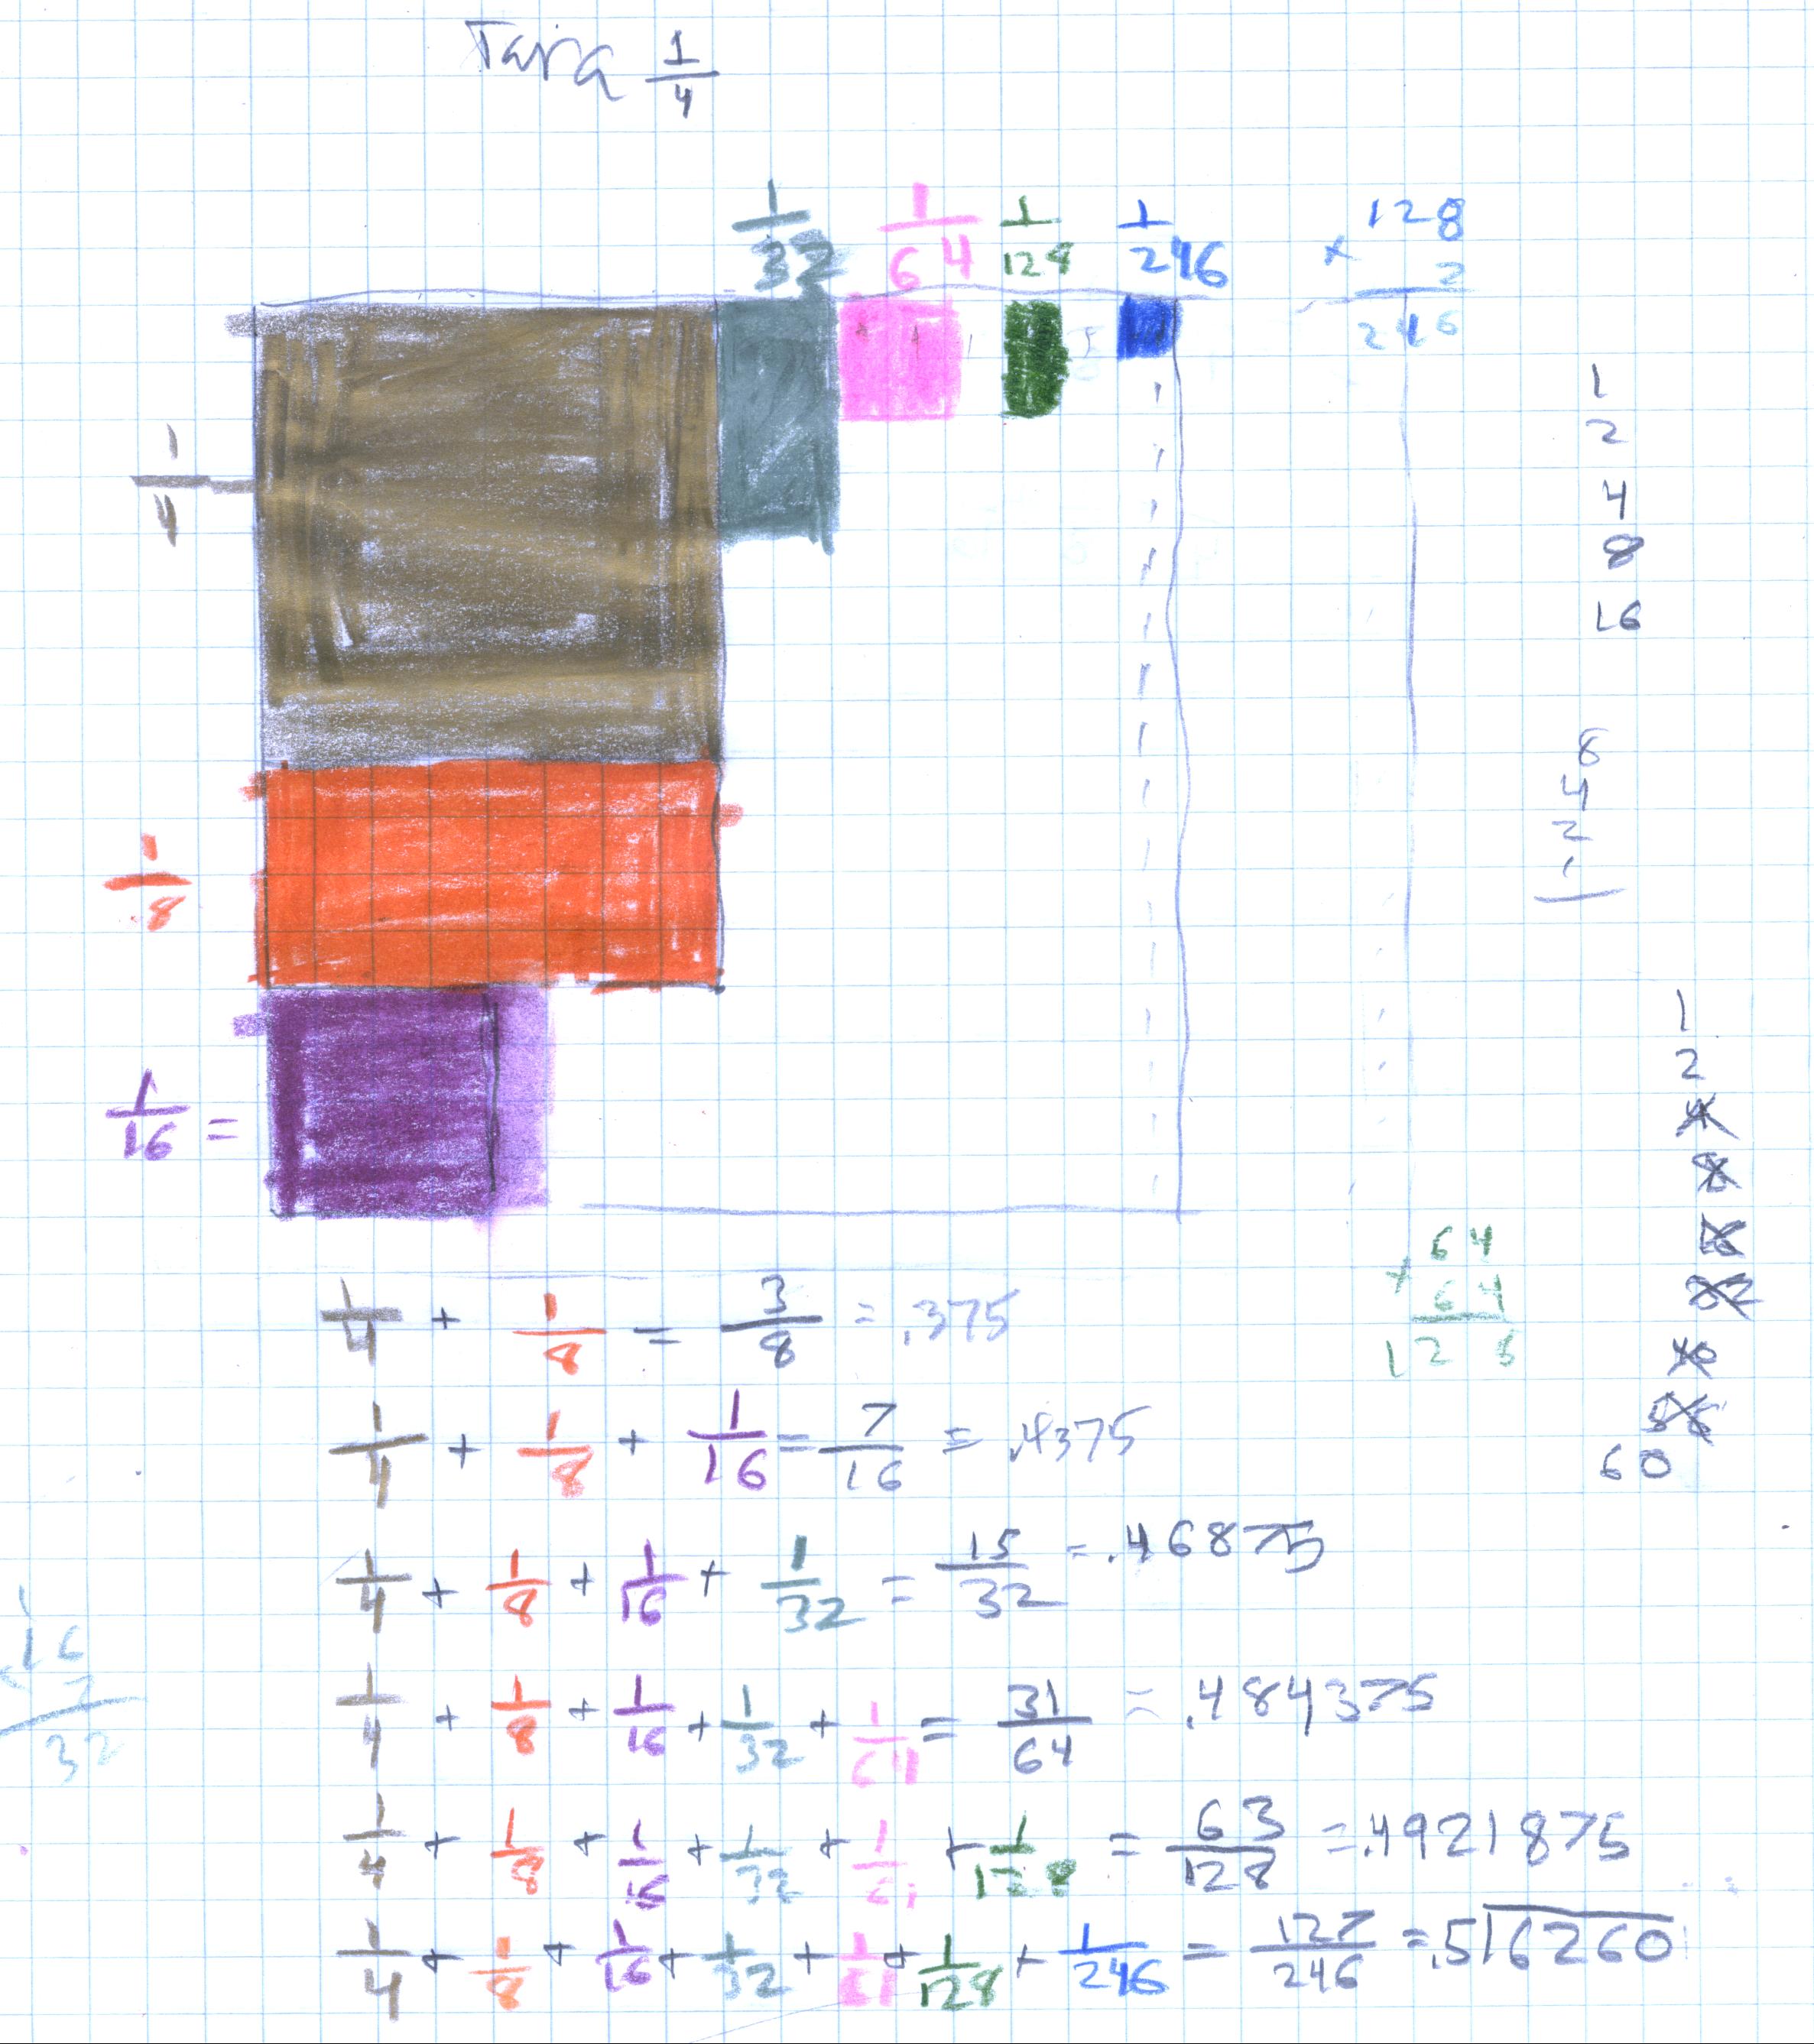 Tara 1/4
1/32 1/64 1/128 1/246
128
× 2
246
1/4
1/8
1/16 =
1
2
4
8
16
8
4
2
1
1
2
4
8
16
32
40
56
60
64
+ 64
128
1/4 + 1/8 = 3/8 = .375
1/4 + 1/8 + 1/16 = 7/16 = .4375
1/4 + 1/8 + 1/16 + 1/32 = 15/32 = .46875
16
32
1/4 + 1/8 + 1/16 + 1/32 + 1/64 = 31/64 = .484375
1/4 + 1/8 + 1/16 + 1/32 + 1/64 + 1/128 = 63/128 = .4921875
1/4 + 1/8 + 1/16 + 1/32 + 1/64 + 1/128 + 1/246 = 127/246 = .516260